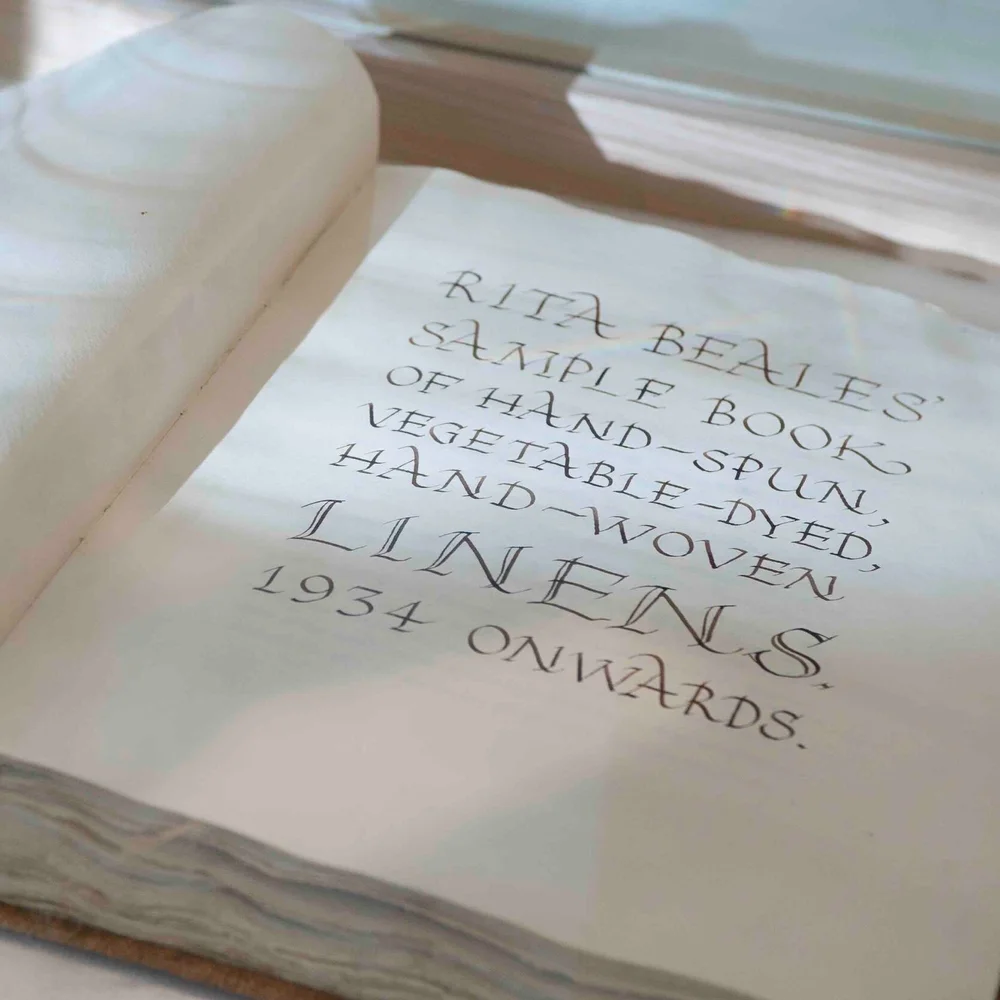 RITA BEALES'
SAMPLE BOOK
OF HAND-SPUN,
VEGETABLE-DYED,
HAND-WOVEN
LINENS.
1934 ONWARDS.